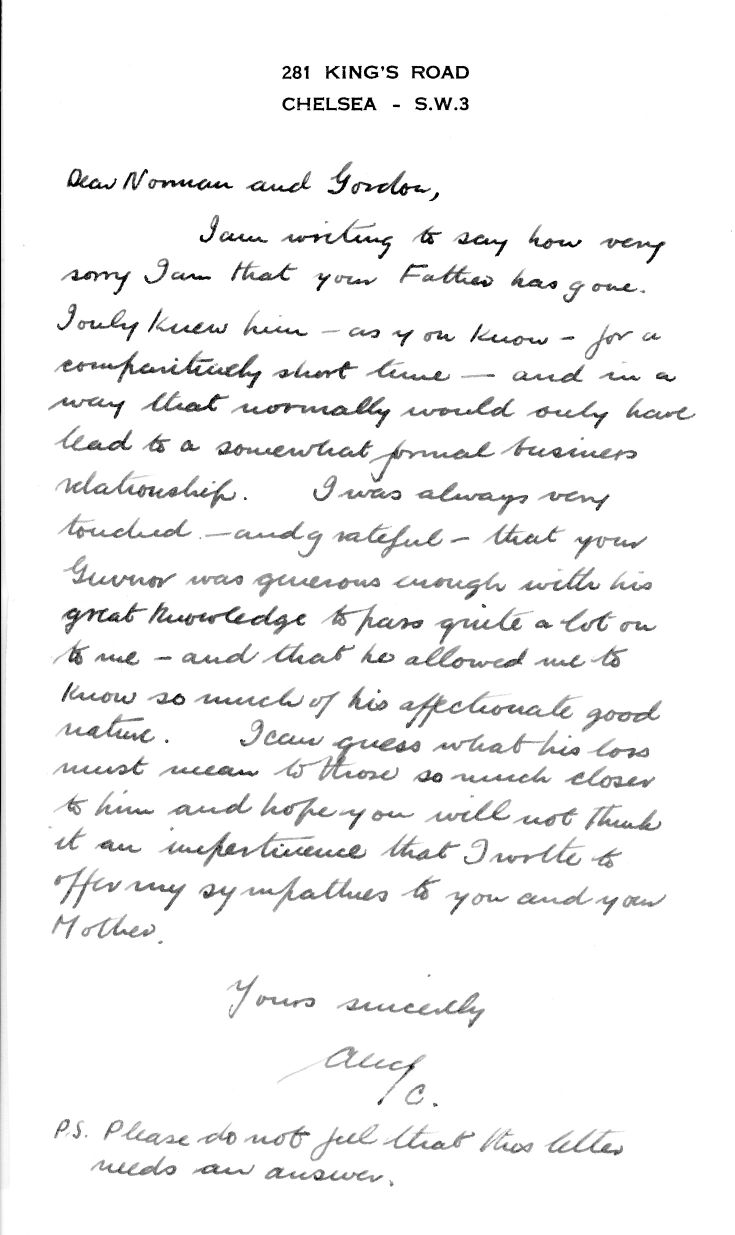 281 KING'S ROAD
CHELSEA - S.W.3
Dear Norman and Gordon,
I am writing to say how very
sorry I am that your Father has gone.
I only knew him – as you know – for a
comparitively short time — and in a
way that normally would only have
lead to a somewhat formal business
relationship. I was always very
touched – and grateful – that your
Guvnor was generous enough with his
great knowledge to pass quite a lot on
to me – and that he allowed me to
know so much of his affectionate good
nature. I can guess what his loss
must mean to those so much closer
to him and hope you will not think
it an impertinence that I write to
offer my sympathies to you and your
Mother.
Yours sincerely
C.
P.S. Please do not feel that this letter
needs an answer.